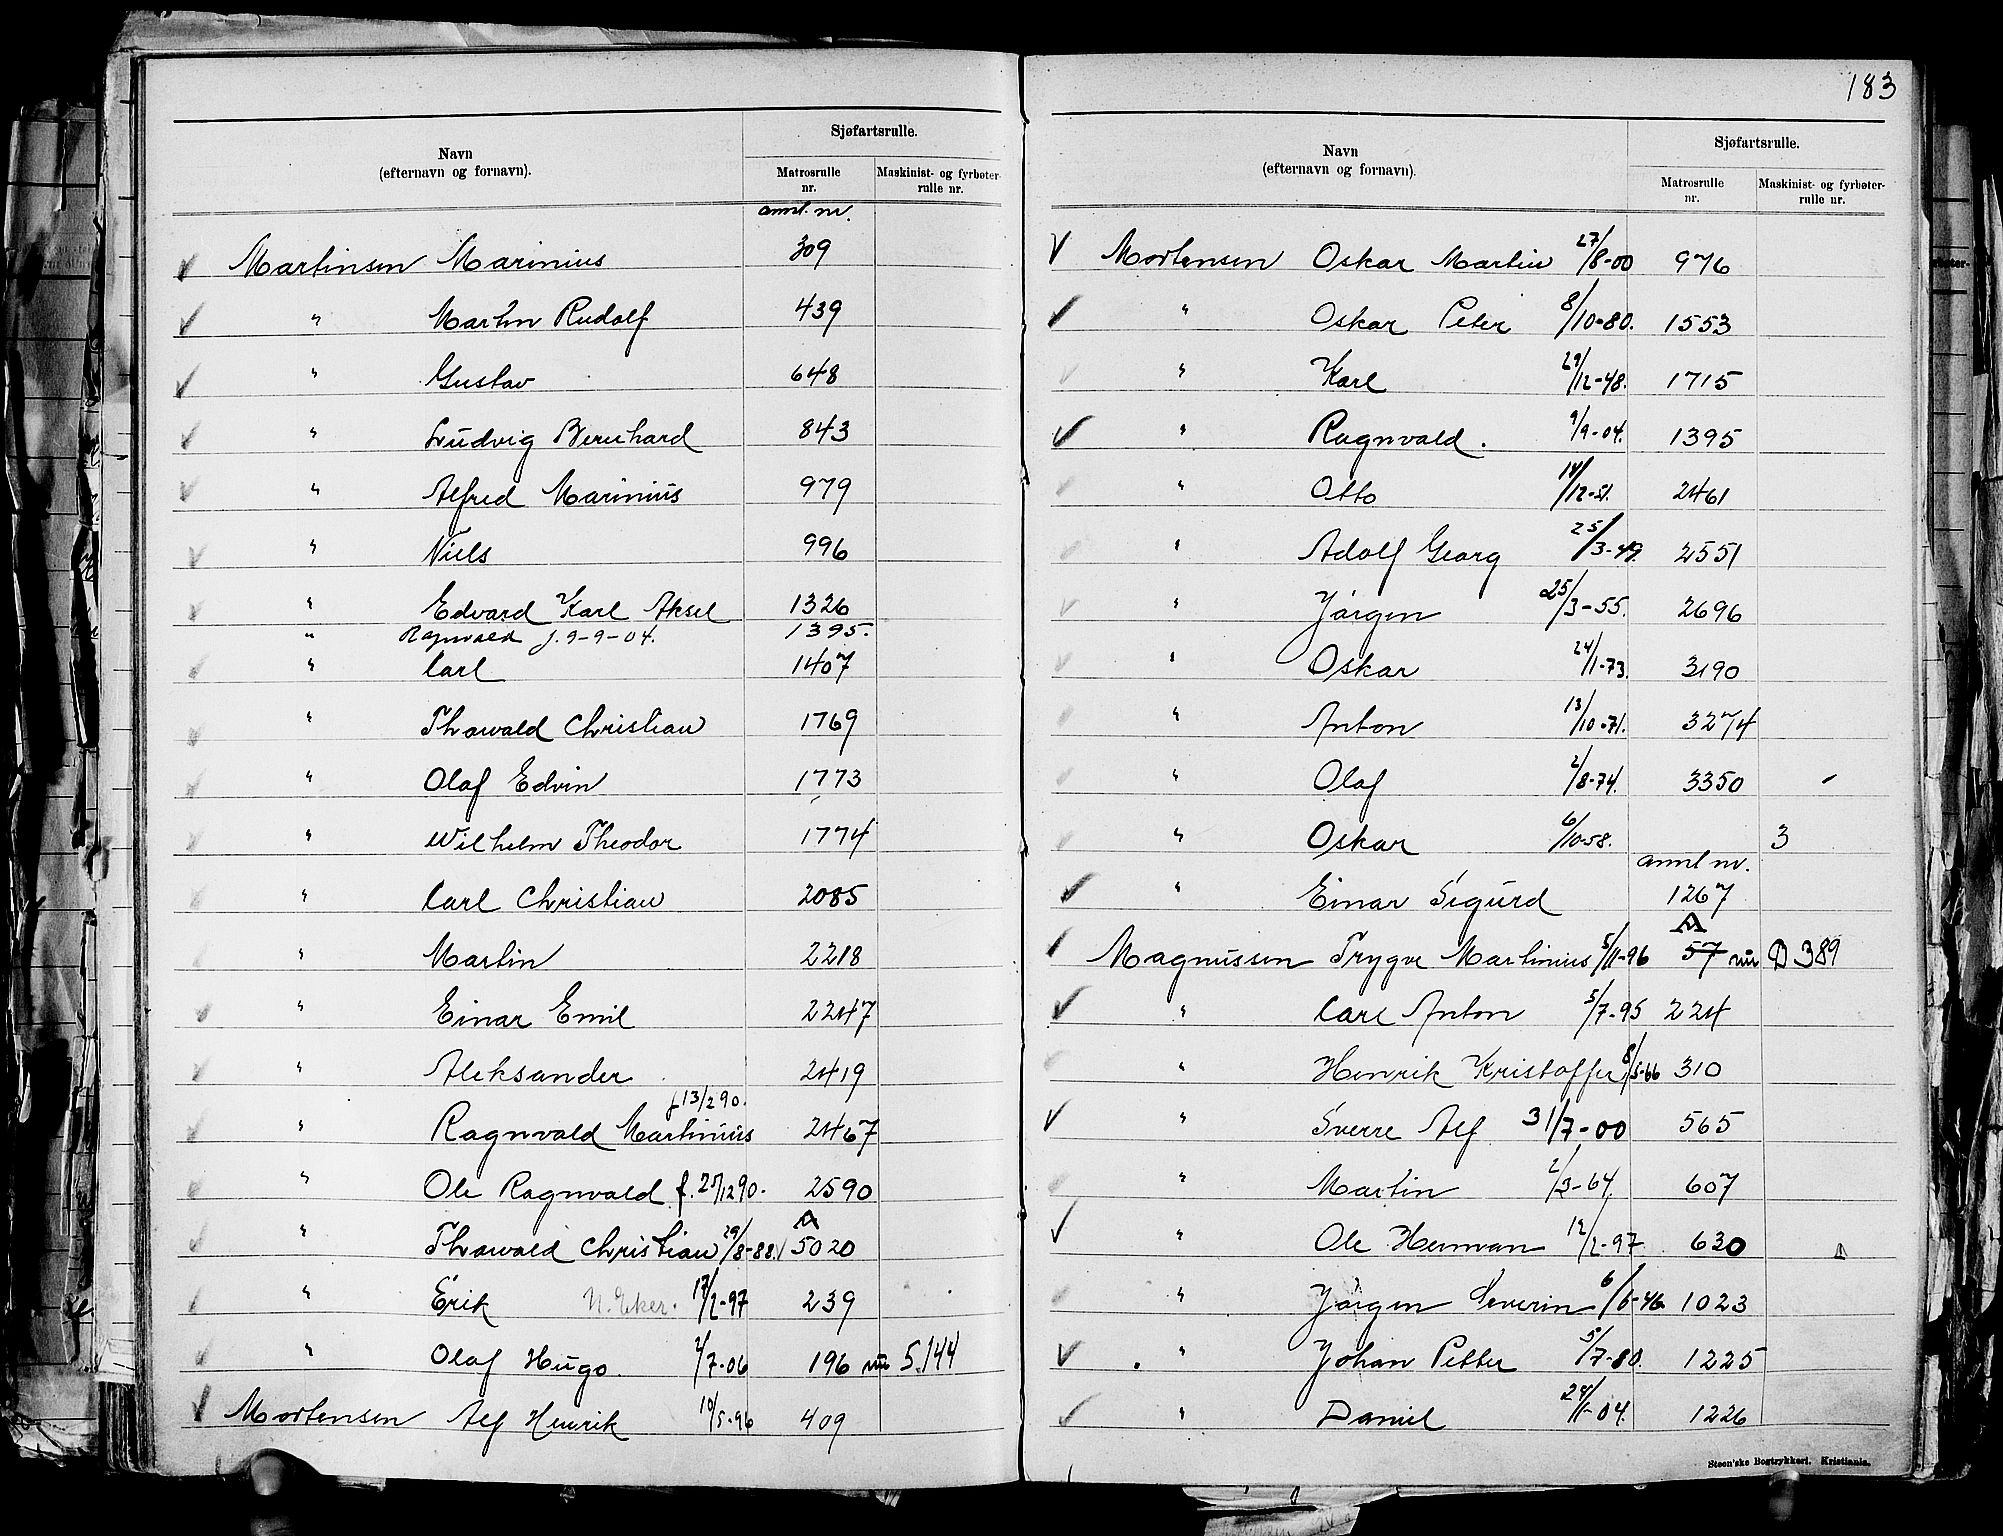 Navn
(efternavn og fornavn).
Sjøfartsrulle.
Matrosrulle
nr.
Maskinist- og fyrbøter-
rulle nr.
annl. nr.
Martinsen Marinius 309
" Martin Rudolf 439
" Gustav 648
" Ludvig Bernhard 843
" Alfred Marinius 979
" Niels 996
" Edvard Karl Aksel 1326
" Ragnvald f. 9-9-04. 1395.
" Carl 1407
" Thorvald Christian 1769
" Olaf Edvin 1773
" Wilhelm Theodor 1774
" Carl Christian 2085
" Martin 2218
" Einar Emil 2247
" Aleksander 2419
f 13/2 90.
" Ragnvald Martinius 2467
" Ole Ragnvald f. 25/12 90. 2590
A
" Thorvald Christian 29/8-88. 5020
" Erik N. Eker. 17/2-97 239
" Olaf Hugo. 2/7-06 196 nu S.144
Mortensen Alf Henrik 10/5-96 409
183
Navn
(efternavn og fornavn).
Sjøfartsrulle.
Matrosrulle
nr.
Maskinist- og fyrbøter-
rulle nr.
Mortensen Oskar Martin 27/8-00 976
" Oskar Peter 8/10-80. 1553
" Karl 29/12-48. 1715
" Ragnvald. 9/9-04. 1395
" Otto 14/12-51. 2461
" Adolf Georg 25/3-49. 2551
" Jörgen 25/3-55. 2696
" Oskar 24/1-73. 3190
" Anton 13/10-71. 3274
" Olaf 2/8-74. 3350
" Oskar 6/10-58. 3
annl nr.
" Einar Sigurd 1267
A
Magnussen Trygve Martinius 5/11-96 57 nu D 389
" Carl Anton 5/7-95 224
" Henrik Kristoffer 8/5-66 310
" Sverre Alf 31/7-00 565
" Martin 2/3-64. 607
" Ole Herman 12/2-97 630
" Jörgen Severin 6/6-46 1023
" Johan Petter 5/7-80. 1225
" Daniel 24/11-04. 1226
Steen'ske Bogtrykkeri. Kristiania.